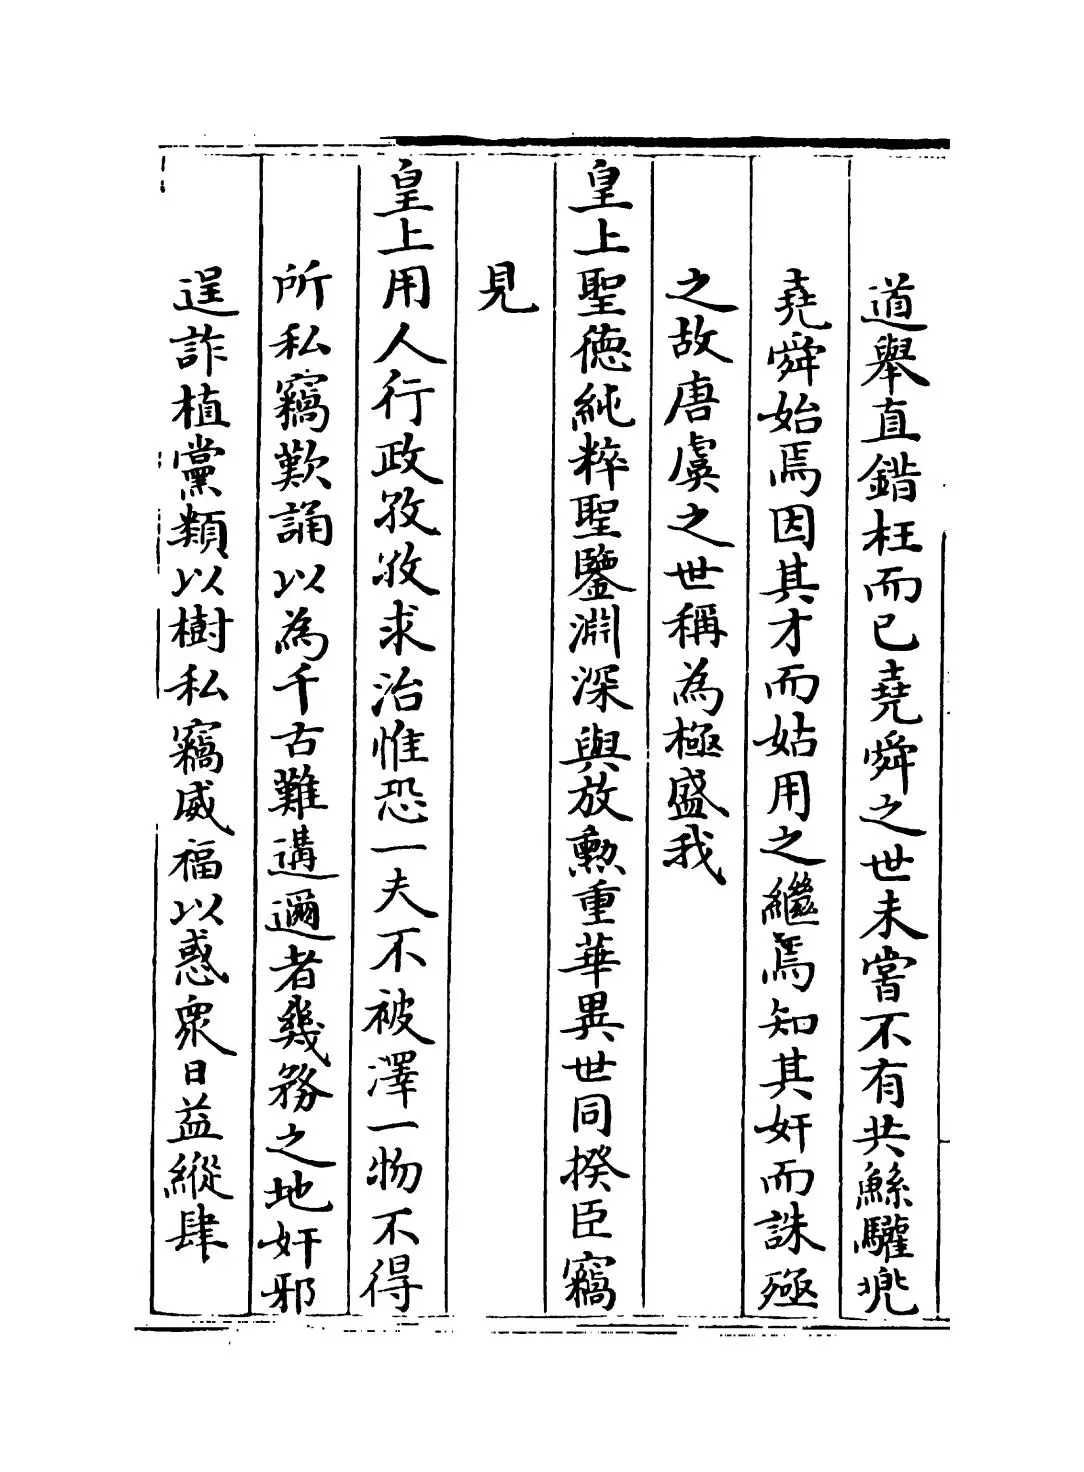 道舉直錯枉而已堯舜之世未嘗不有共鯀驩兜
堯舜始焉因其才而姑用之繼焉知其奸而誅殛
之故唐虞之世稱為極盛我
皇上聖德純粹聖鑒淵深與放勲重華異世同揆臣竊
見
皇上用人行政孜孜求治惟恐一夫不被澤一物不得
所私竊歎誦以為千古難遘邇者幾務之地奸邪
逞詐植黨類以樹私竊威福以惑衆日益縱肆